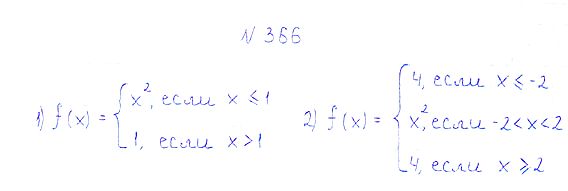 N 366
1) f(x) = { x², если x ≤ 1
1, если x > 1
2) f(x) = { 4, если x ≤ -2
x², если -2 < x < 2
4, если x ≥ 2